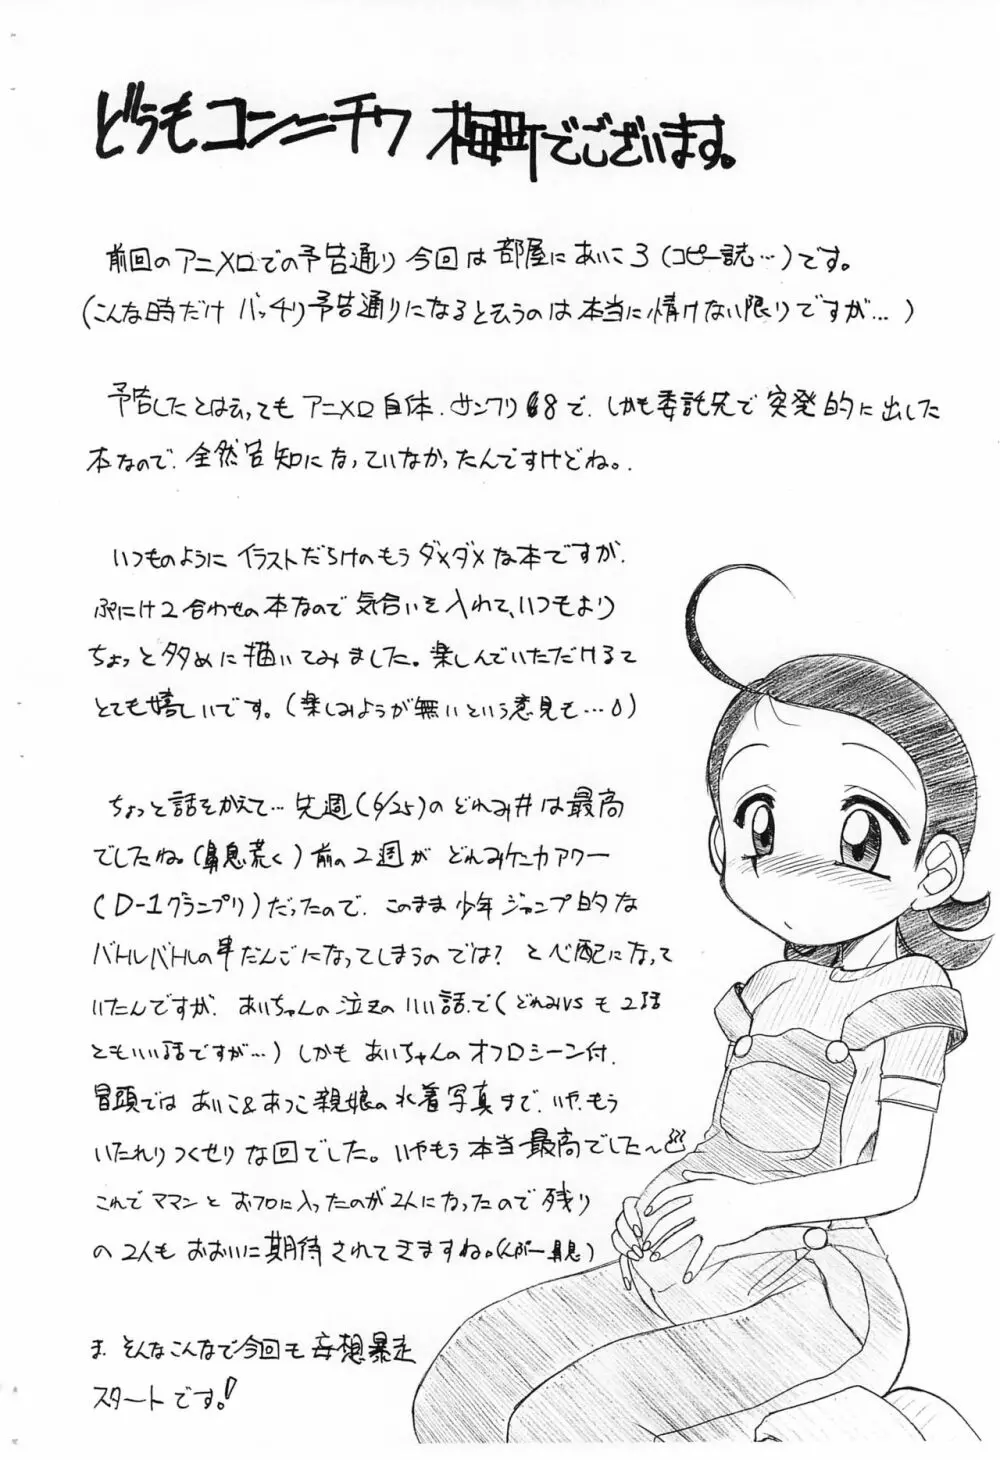 どうもコンニチワ 梅町でございます。
前回のアニメロでの予告通り今回は部屋にあいこ3(コピー誌…)です。
(こんな時だけ バッチリ予告通りになると云うのは本当に情けない限りですが…)
予告したとは云ってもアニメロ自体、サンクリ 8で、しかも委託先で突発的に出した
本なので、全然告知になっていなかったんですけどね。
いつものように イラストだらけのもうダメダメな本ですが、
ぷにけ2合わせの本なので気合いを入れて、いつもより
ちょっと多めに描いてみました。楽しんでいただけるて
とても嬉しいです。(楽しみようが無いという意見も…)
ちょっと話をかえて…先週(6/25)の どれみ#は最高
でしたね。(鼻息荒く) 前の2週が どれみケンカアワー
(D-1グランプリ)だったので、このまま少年ジャンプ的な
バトルバトルの串だんごになってしまうのでは?と心配になって
いたんですが、あいちゃんの泣きのいい話で(どれみVSも2話
ともいい話ですが…)しかも あいちゃんのオフロシーン付、
冒頭では あいこ&あつこ親娘の水着写真まで、いや、もう
いたれりつくせりな回でした。いやもう本当最高でした〜
これでママンと お70に入ったのが2人になったので残り
の2人も おおいに期待されてきますね。(んぷー鼻息)
ま、そんなこんなで今回も妄想暴走
スタートです。!